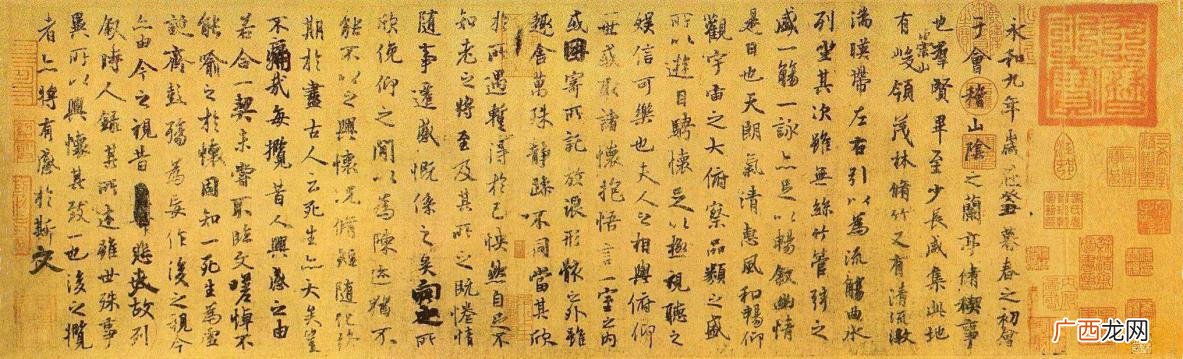 永和九年歲在癸丑暮春之初會
于會稽山陰之蘭亭脩稧事
也羣賢畢至少長咸集此地
有崇山峻領茂林脩竹又有清流激
湍暎帶左右引以為流觴曲水
列坐其次雖無絲竹管弦之
盛一觴一詠亦足以暢敘幽情
是日也天朗氣清惠風和暢仰
觀宇宙之大俯察品類之盛
所以遊目騁懷足以極視聽之
娛信可樂也夫人之相與俯仰
一世或取諸懷抱悟言一室之內
或因寄所託放浪形骸之外雖
趣舍萬殊靜躁不同當其欣
於所遇蹔得於己怏然自足不
知老之將至及其所之既惓情
隨事遷感慨係之矣向之所
欣俛仰之閒以為陳迹猶不
能不以之興懷況脩短隨化終
期於盡古人云死生亦大矣豈
不痛哉每攬昔人興感之由
若合一契未嘗不臨文嗟悼不
能喻之於懷固知一死生為虛
誕齊彭殤為妄作後之視今
亦由今之視昔悲夫故列
敘時人錄其所述雖世殊事
異所以興懷其致一也後之攬
者亦將有感於斯文
广西龙网